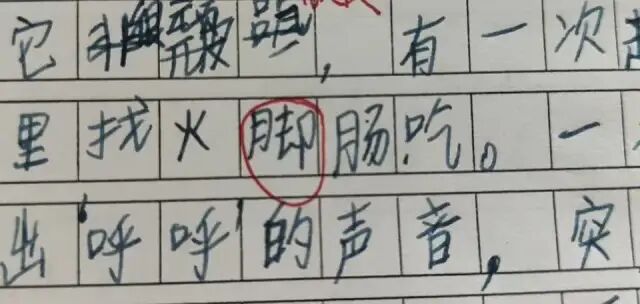 它，有一次
里找火脚肠吃。一
出“呼呼”的声音，突